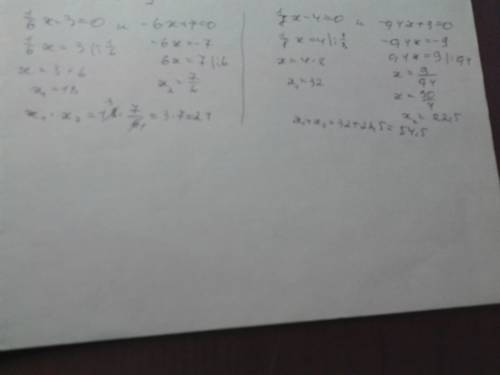 1/6 x - 3 = 0 и -6x + 7 = 0
1/6 x = 3 |: 1/6
-6x = -7
6x = 7 |:6
x = 3 · 6
x₁ = 18
x₂ = 7/6
x₁ · x₂ = 18 · 7/6 = 3 · 7 = 21
x - 4 = 0 и -0,4x + 9 = 0
x = 4 |:
-0,4x = -9
0,4x = 9 |: 0,4
x = 4 · 8
x₁ = 32
x = 9/0,4
x = 90/4
x₂ = 22,5
x₁ + x₂ = 32 + 22,5 = 54,5